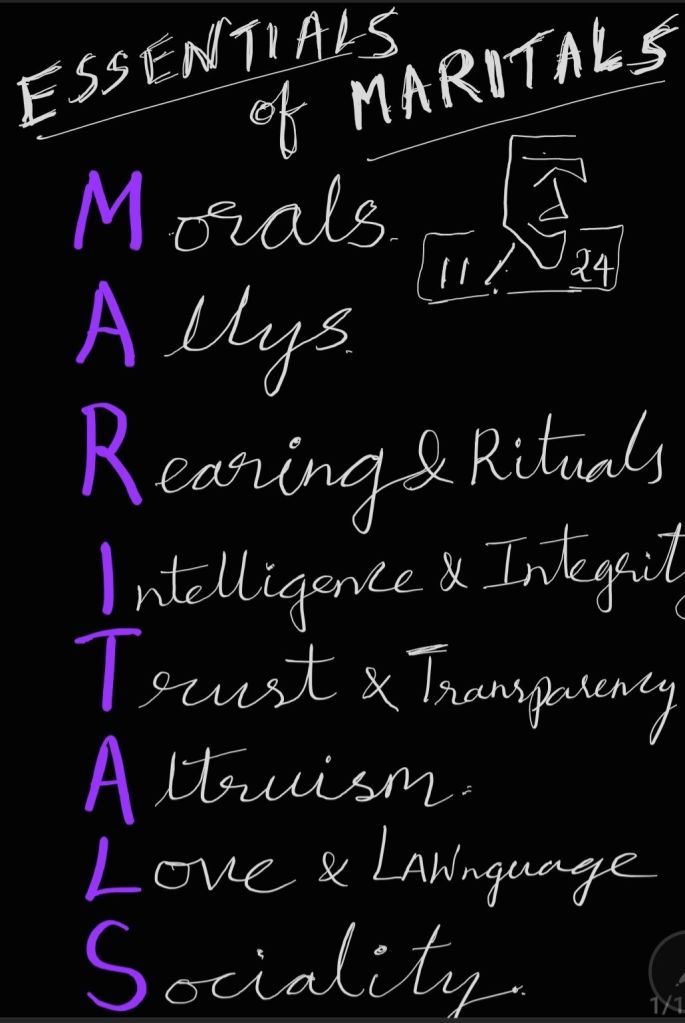 ESSENTIALS
of MARITALS
Morals.
11/24
Allys.
Rearing & Rituals
Intelligence & Integrit
Trust & Transparency
Altruism.
Love & LAWnguage
Sociality.
1/1